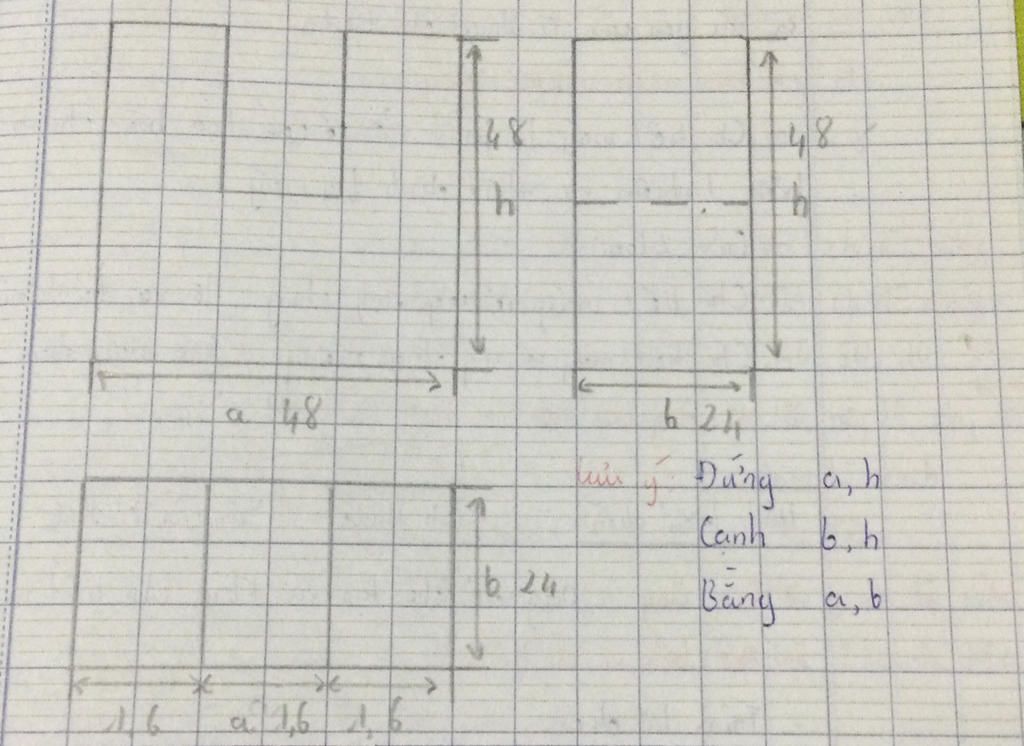 48
h
48
h
a 48
b 24
lưu ý Đứng a, h
Cạnh b, h
Bằng a, b
b 24
1,6 a 1,6 1,6